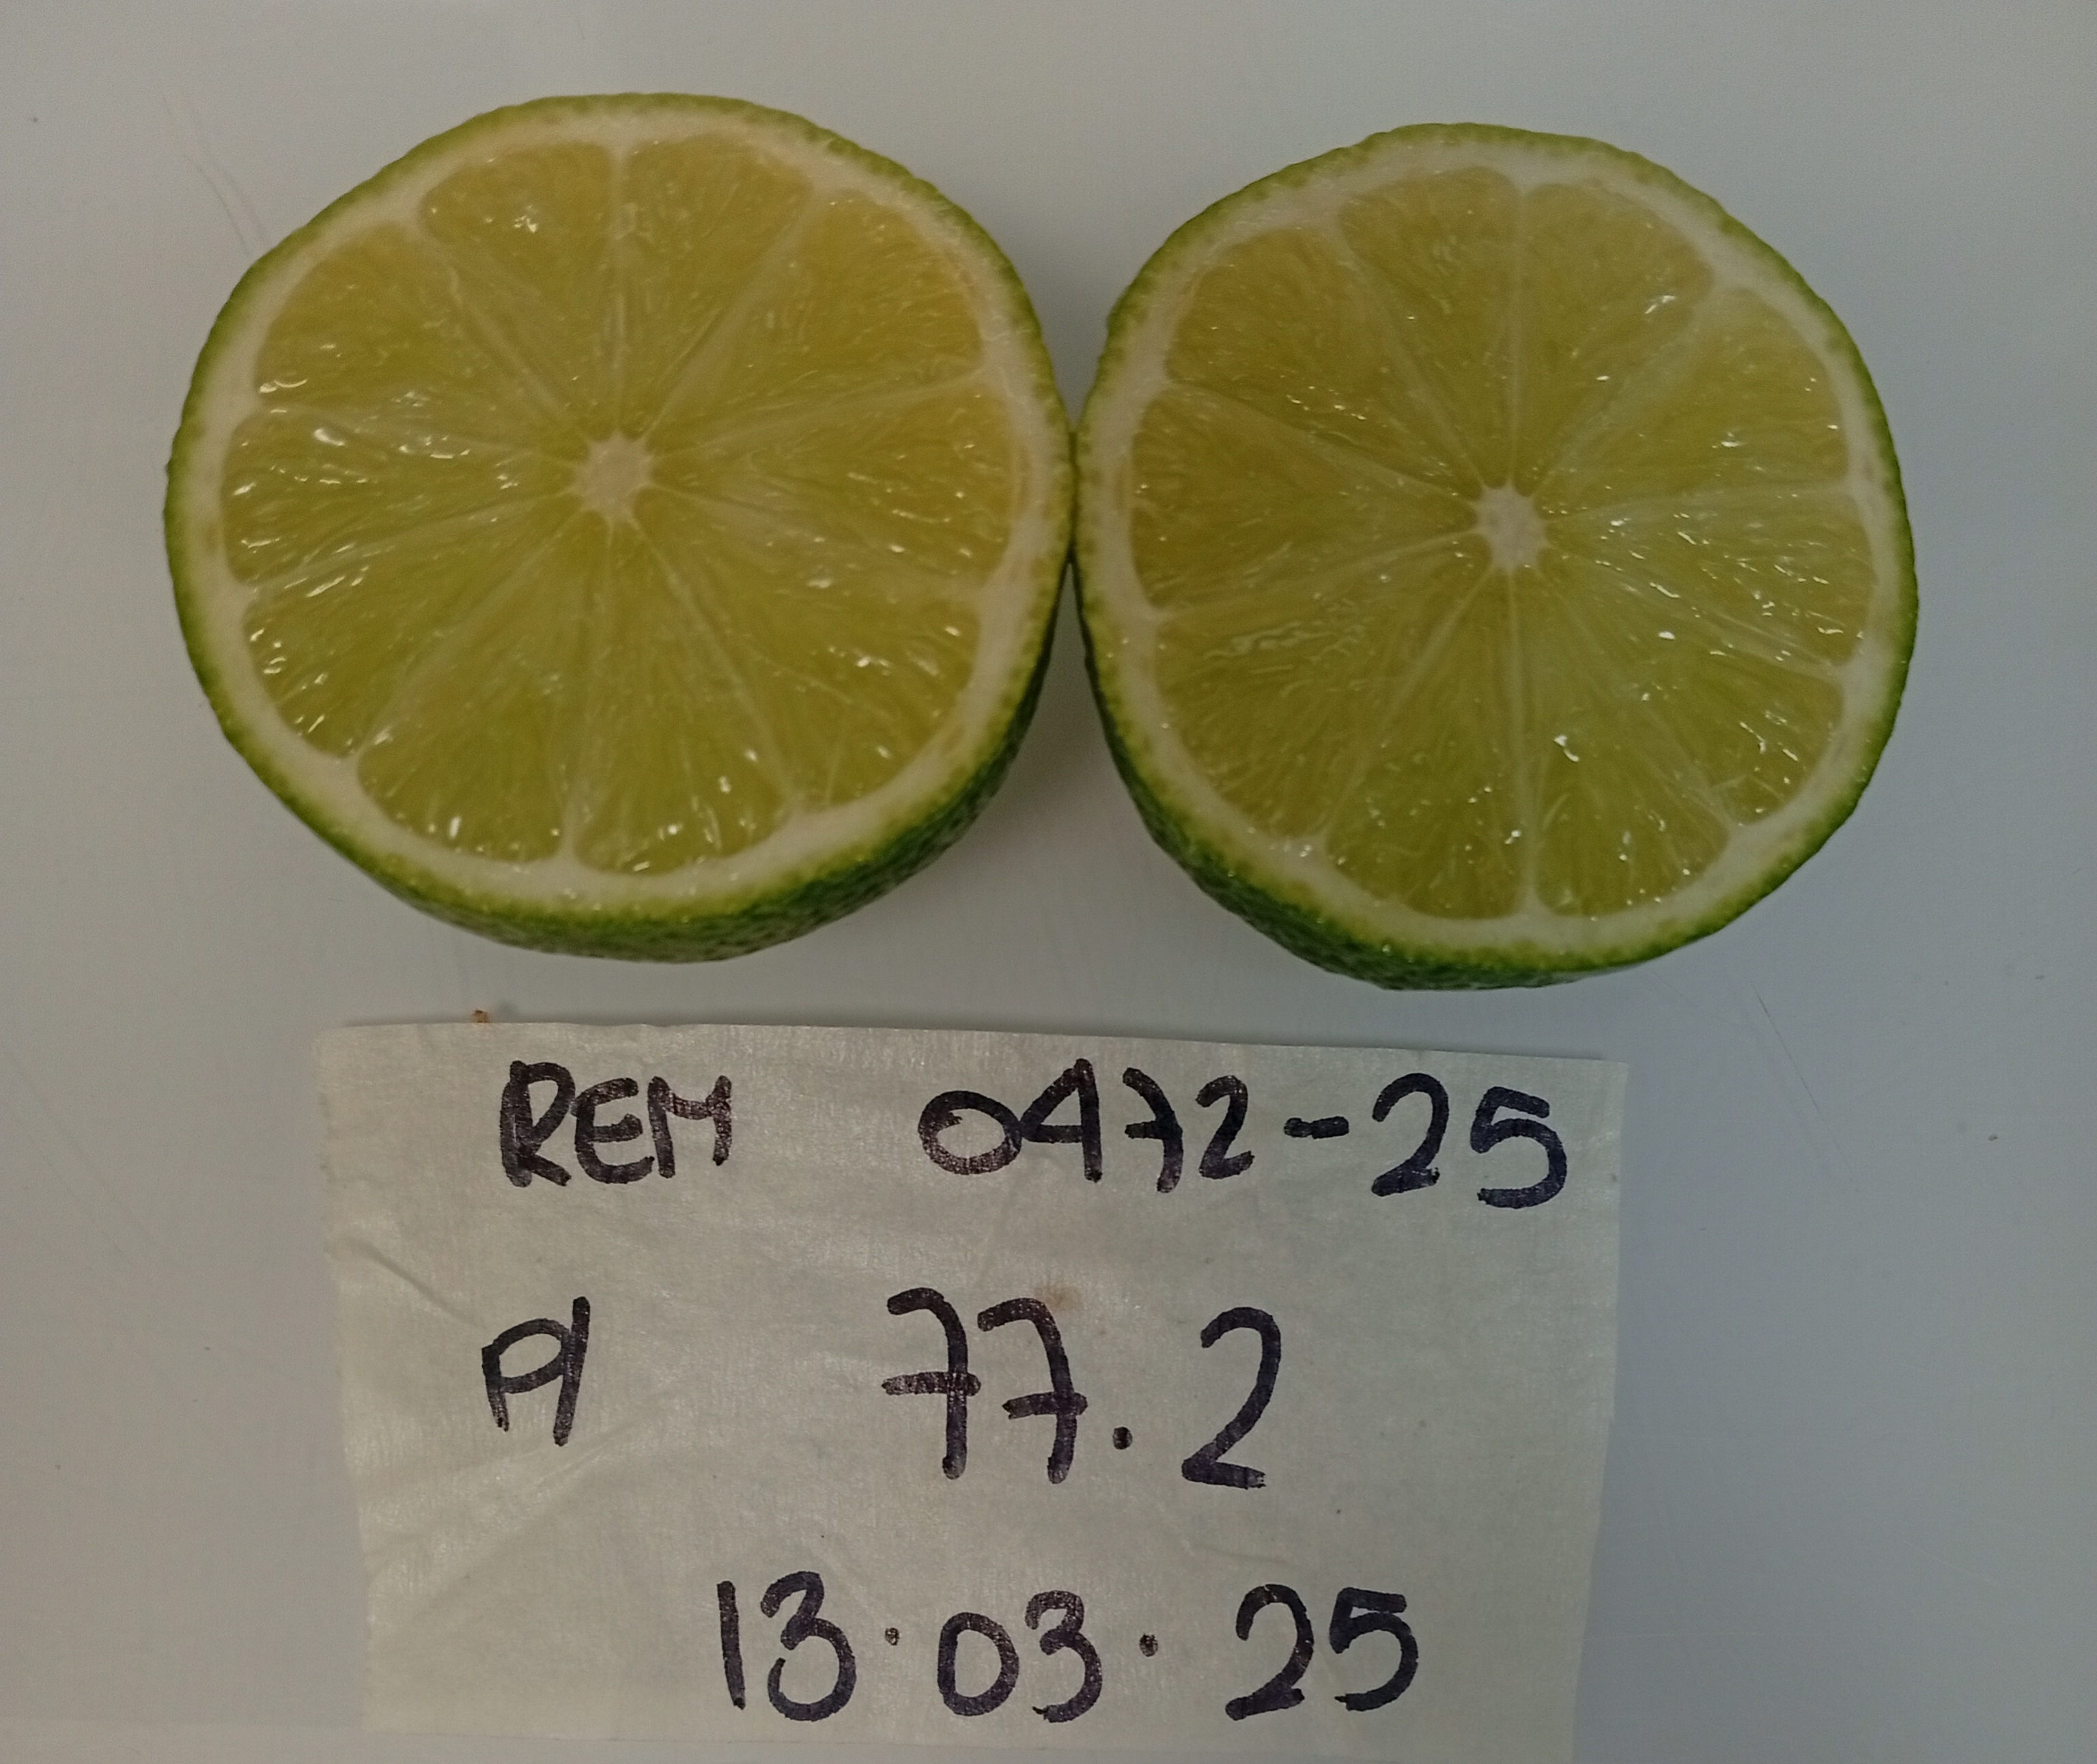 REM 0472-25
P/ 77.2
13.03.25